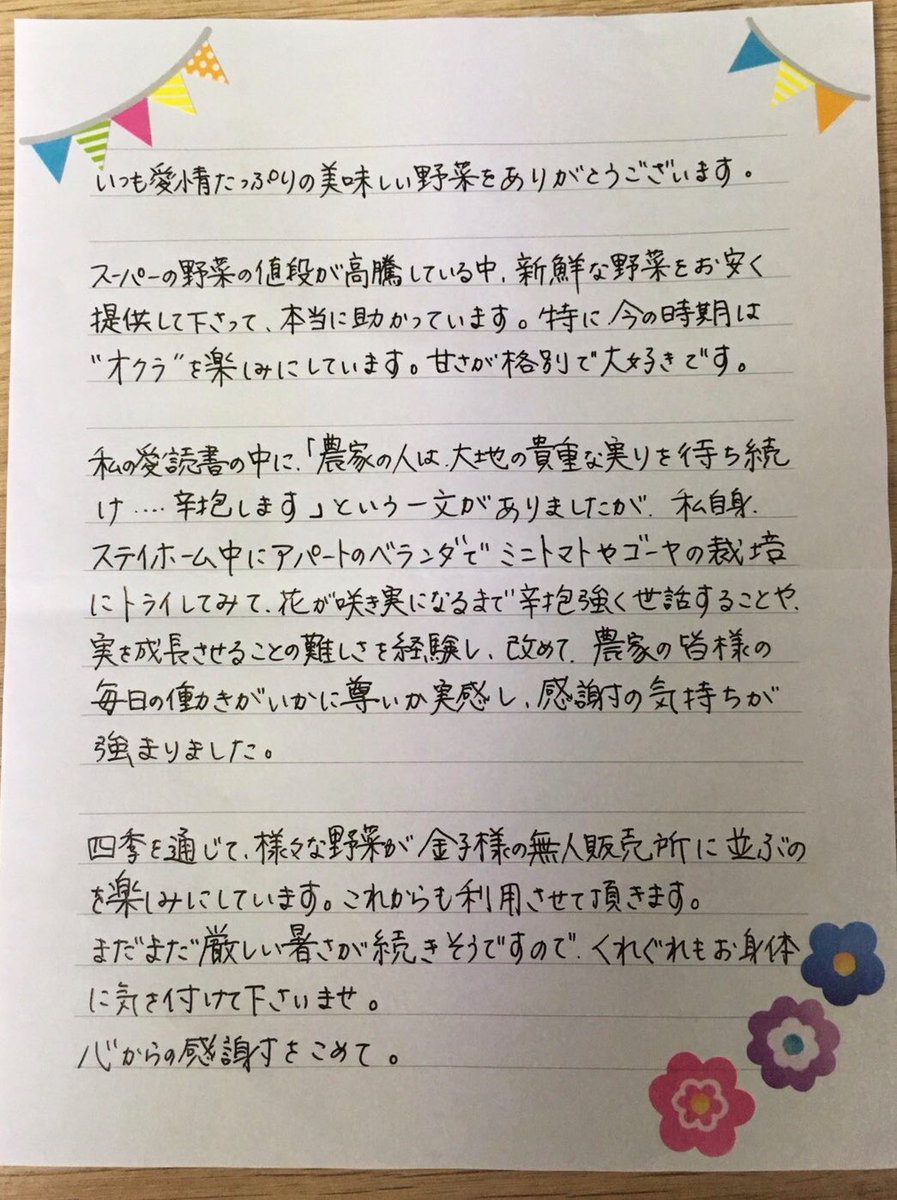 いつも愛情たっぷりの美味しい野菜をありがとうございます。
スーパーの野菜の値段が高騰している中、新鮮な野菜をお安く
提供して下さって、本当に助かっています。特に今の時期は
"オクラ"を楽しみにしています。甘さが格別で大好きです。
私の愛読書の中に、「農家の人は、大地の貴重な実りを待ち続
け‥‥辛抱します」という一文がありましたが、私自身、
ステイホーム中にアパートのベランダでミニトマトやゴーヤの栽培
にトライしてみて、花が咲き実になるまで辛抱強く世話することや、
実を成長させることの難しさを経験し、改めて、農家の皆様の
毎日の働きがいかに尊いか実感し、感謝の気持ちが
強まりました。
四季を通じて、様々な野菜が金子様の無人販売所に並ぶの
を楽しみにしています。これからも利用させて頂きます。
まだまだ厳しい暑さが続きそうですので、くれぐれもお身体
に気を付けて下さいませ。
心からの感謝をこめて。